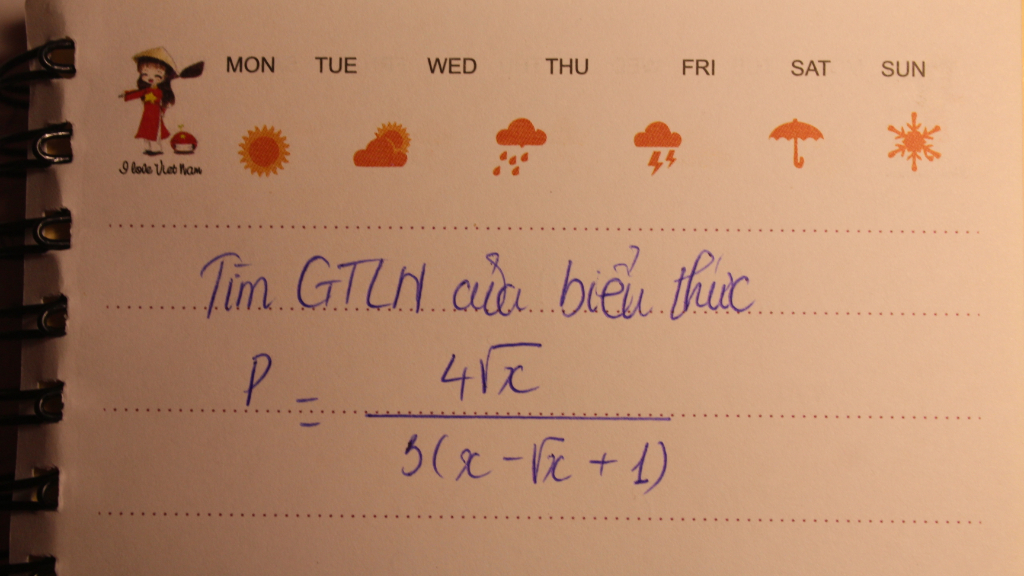 MON TUE WED THU FRI SAT SUN
I love Viet Nam
Tìm GTLN của biểu thức
P = 4√x / 3(x - √x + 1)